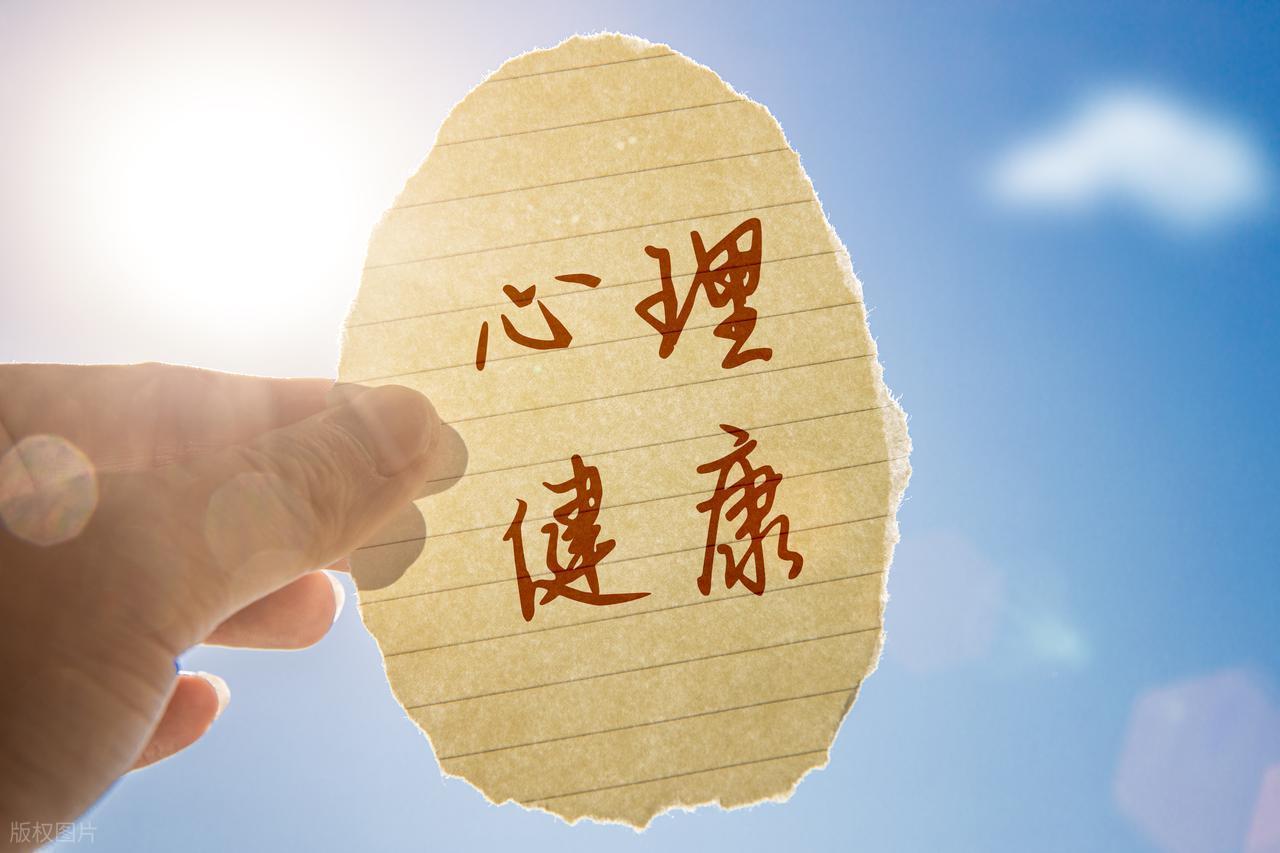 心理
健康
版权图片